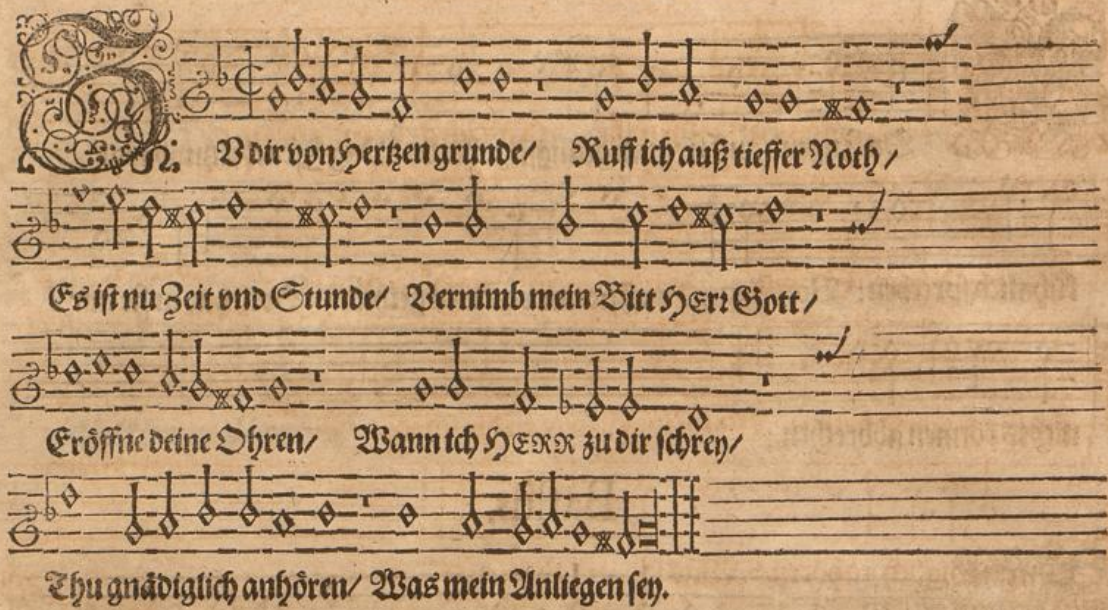 ZV dir von Hertzen grunde/ Ruff ich auß tieffer Noth/
Es ist nu Zeit vnd Stunde/ Vernimb mein Bitt HErr Gott/
Eröffne deine Ohren/ Wann ich HERR zu dir schrey/
Thu gnädiglich anhören/ Was mein Anliegen sey.